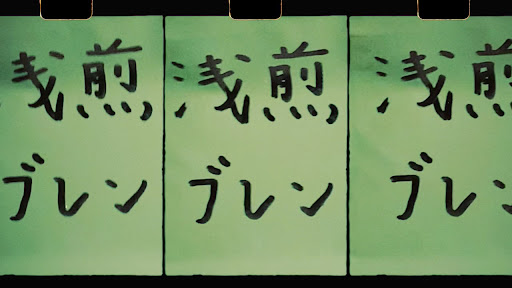 浅煎
ブレン
浅煎
ブレン
浅煎
ブレン